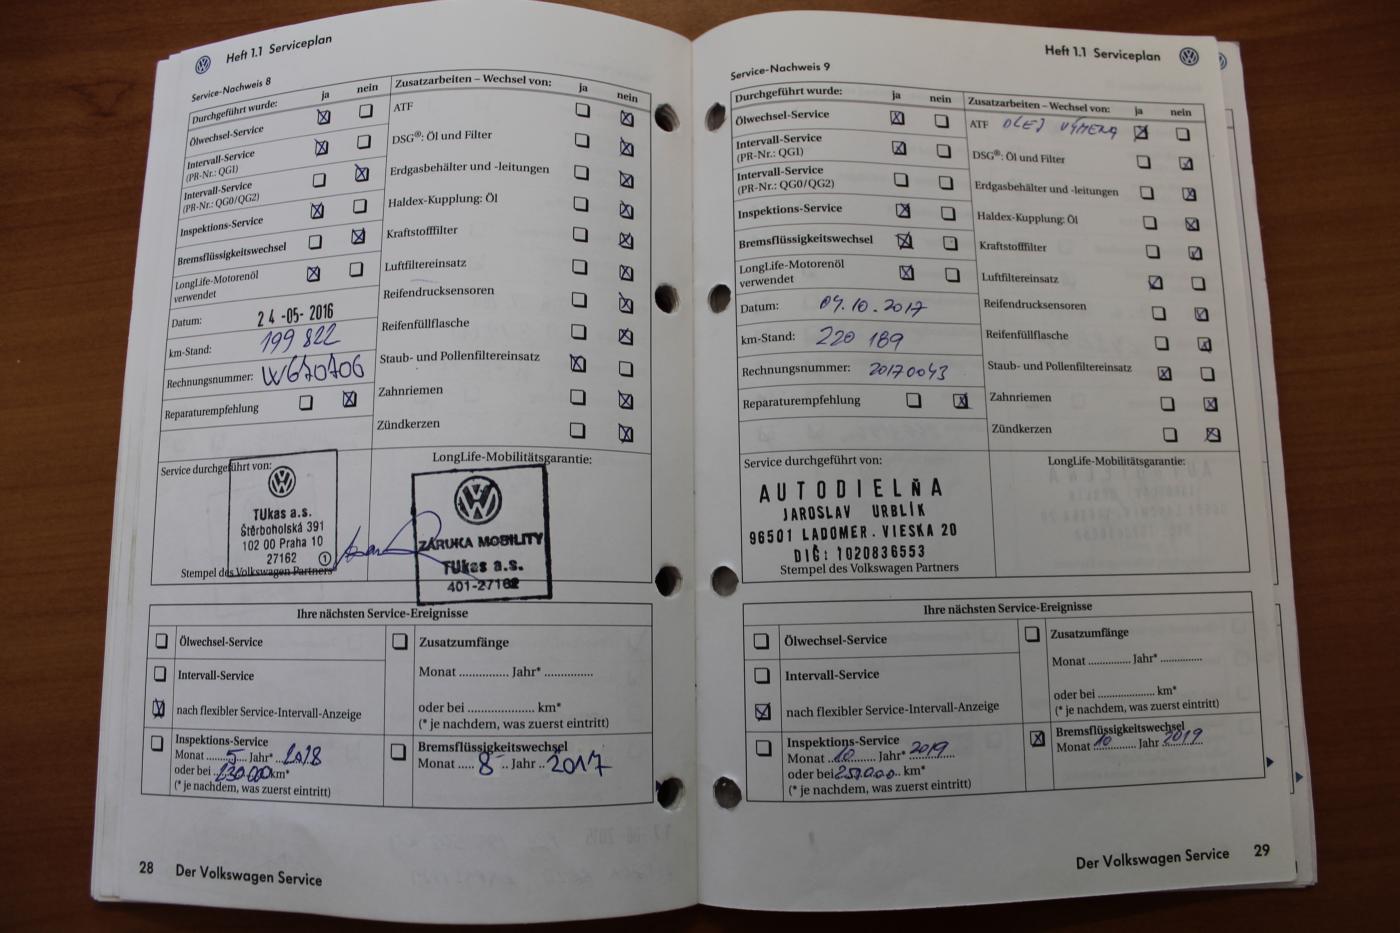 Heft 1.1 Serviceplan
Service-Nachweis 8
Durchgeführt wurde: ja nein
Ölwechsel-Service
Intervall-Service
(PR-Nr.: QG1)
Intervall-Service
(PR-Nr.: QG0/QG2)
Inspektions-Service
Bremsflüssigkeitswechsel
LongLife-Motorenöl
verwendet
Datum: 24-05-2016
km-Stand: 199 822
Rechnungsnummer: W670706
Reparaturempfehlung
Zusatzarbeiten – Wechsel von: ja nein
ATF
DSG®: Öl und Filter
Erdgasbehälter und -leitungen
Haldex-Kupplung: Öl
Kraftstofffilter
Luftfiltereinsatz
Reifendrucksensoren
Reifenfüllflasche
Staub- und Pollenfiltereinsatz
Zahnriemen
Zündkerzen
Service durchgeführt von:
TUkas a.s.
Štěrboholská 391
102 00 Praha 10
27162 1
Stempel des Volkswagen Partners
LongLife-Mobilitätsgarantie:
ZÁRUKA MOBILITY
TUkas a.s.
401-27162
Ihre nächsten Service-Ereignisse
Ölwechsel-Service
Intervall-Service
nach flexibler Service-Intervall-Anzeige
Inspektions-Service
Monat 5 Jahr* 2018
oder bei 230 000 km*
(* je nachdem, was zuerst eintritt)
Zusatzumfänge
Monat .............. Jahr* ..............
oder bei .................... km*
(* je nachdem, was zuerst eintritt)
Bremsflüssigkeitswechsel
Monat ..... 8 .. Jahr .. 2017
28 Der Volkswagen Service
Heft 1.1 Serviceplan
Service-Nachweis 9
Durchgeführt wurde: ja nein
Ölwechsel-Service
Intervall-Service
(PR-Nr.: QG1)
Intervall-Service
(PR-Nr.: QG0/QG2)
Inspektions-Service
Bremsflüssigkeitswechsel
LongLife-Motorenöl
verwendet
Datum: 04.10.2017
km-Stand: 220 189
Rechnungsnummer: 20170043
Reparaturempfehlung
Zusatzarbeiten – Wechsel von: ja nein
ATF OLEJ VÝMENA
DSG®: Öl und Filter
Erdgasbehälter und -leitungen
Haldex-Kupplung: Öl
Kraftstofffilter
Luftfiltereinsatz
Reifendrucksensoren
Reifenfüllflasche
Staub- und Pollenfiltereinsatz
Zahnriemen
Zündkerzen
Service durchgeführt von:
AUTODIELŇA
JAROSLAV URBLÍK
96501 LADOMER. VIESKA 20
DIČ: 1020836553
Stempel des Volkswagen Partners
LongLife-Mobilitätsgarantie:
Ihre nächsten Service-Ereignisse
Ölwechsel-Service
Intervall-Service
nach flexibler Service-Intervall-Anzeige
Inspektions-Service
Monat 10 Jahr* 2019
oder bei 250.000 km*
(* je nachdem, was zuerst eintritt)
Zusatzumfänge
Monat .............. Jahr* ..............
oder bei .................... km*
(* je nachdem, was zuerst eintritt)
Bremsflüssigkeitswechsel
Monat 10 Jahr 2019
Der Volkswagen Service 29